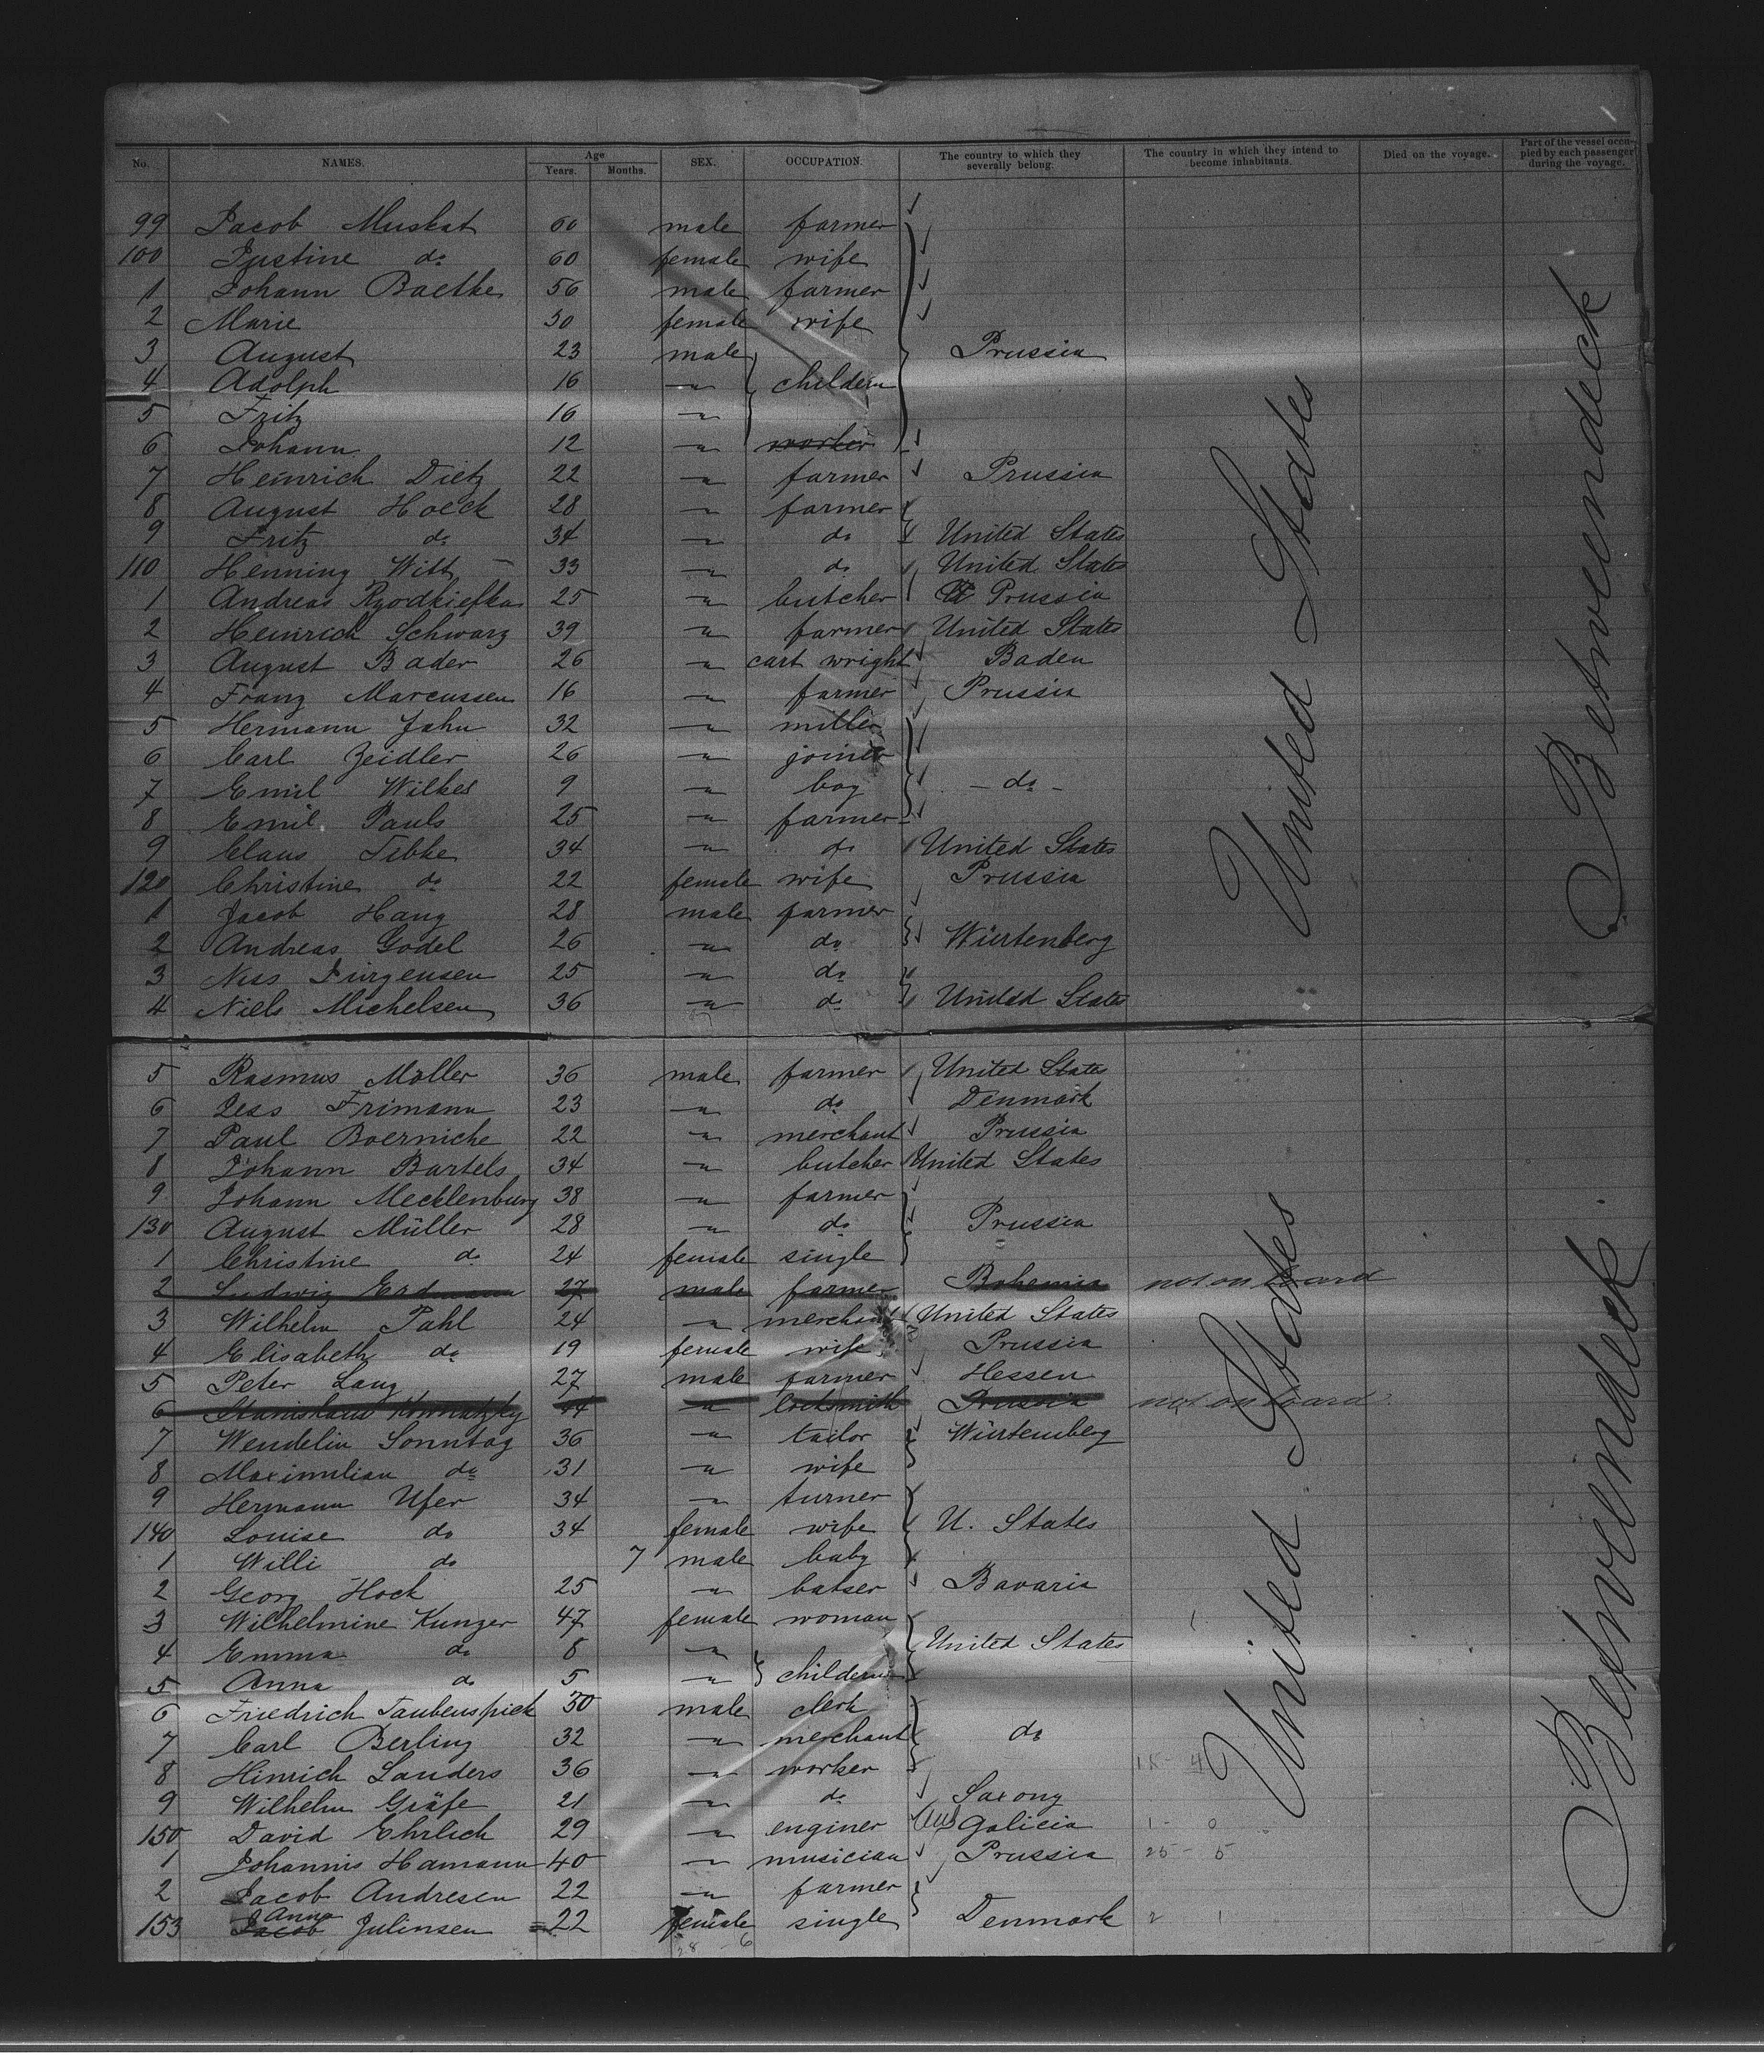 No. NAMES. Age Years. Months. SEX. OCCUPATION. The country to which they severally belong. The country in which they intend to become inhabitants. Died on the voyage. Part of the vessel occupied by each passenger during the voyage.
99 Jacob Muskat 60 male farmer
100 Justine do 60 female wife
1 Johann Baetke 56 male farmer
2 Marie 50 female wife
3 August 23 male Prussia
4 Adolph 16 " childern
5 Fritz 16 "
6 Johann 12 " worker
7 Heinrich Dietz 22 " farmer Prussia
8 August Hoeck 28 " farmer
9 Fritz do 34 " do United States
110 Henning Witt 33 " do United States
1 Andreas 25 " butcher Prussia
2 Heinrich Schwarz 39 " farmer United States
3 August Bader 26 " cart wright Baden
4 Franz Marcussen 16 " farmer Prussia
5 Hermann Jahn 32 " miller
6 Carl Zeidler 26 " joiner
7 Emil Wilkes 9 " boy - do -
8 Emil Pauls 25 " farmer
9 Claus Tibke 34 " do United States
120 Christine do 22 female wife Prussia
1 Jacob Haug 28 male farmer
2 Andreas Godel 26 " do Würtenberg
3 Niss Jürgensen 25 " do
4 Niels Michelsen 36 " do United States
5 Rasmus Möller 36 male farmer United States
6 Jess Frimann 23 " do Denmark
7 Paul Boerniche 22 " merchant Prussia
8 Johann Bartels 34 " butcher United States
9 Johann Mecklenburg 38 " farmer
130 August Müller 28 " do Prussia
1 Christine do 24 female single
2 Ludwig Erdmann 27 male farmer Bohemia not on board
3 Wilhelm Pahl 24 " merchant United States
4 Elisabeth do 19 female wife Prussia
5 Peter Lang 27 male farmer Hessen
6 Stanislaus 44 " locksmith Prussia not on board
7 Wendelin Sonntag 36 " tailor Würtemberg
8 Maximilian do 31 " wife
9 Hermann Ufer 34 " turner
140 Louise do 34 female wife U. States
1 Willi do 7 male baby
2 Georg Hock 25 " batser Bavaria
3 Wilhelmine Kunzer 47 female woman
4 Emma do 8 " United States
5 Anna do 5 " childern
6 Friedrich Taubenspick 30 male clerk
7 Carl Berling 32 " merchant do
8 Hinrich Landers 36 " worker
9 Wilhelm Gräfe 21 " do Saxony
150 David Ehrlich 29 " enginer (Aus) Galicia 1 - 0
1 Johannis Hamann 40 " musician Prussia 25 - 5
2 Jacob Andresen 22 " farmer
153 Jacob Anna Julinsen 22 female single Denmark 2 1
United States
Betweendeck
United States
Betweendeck